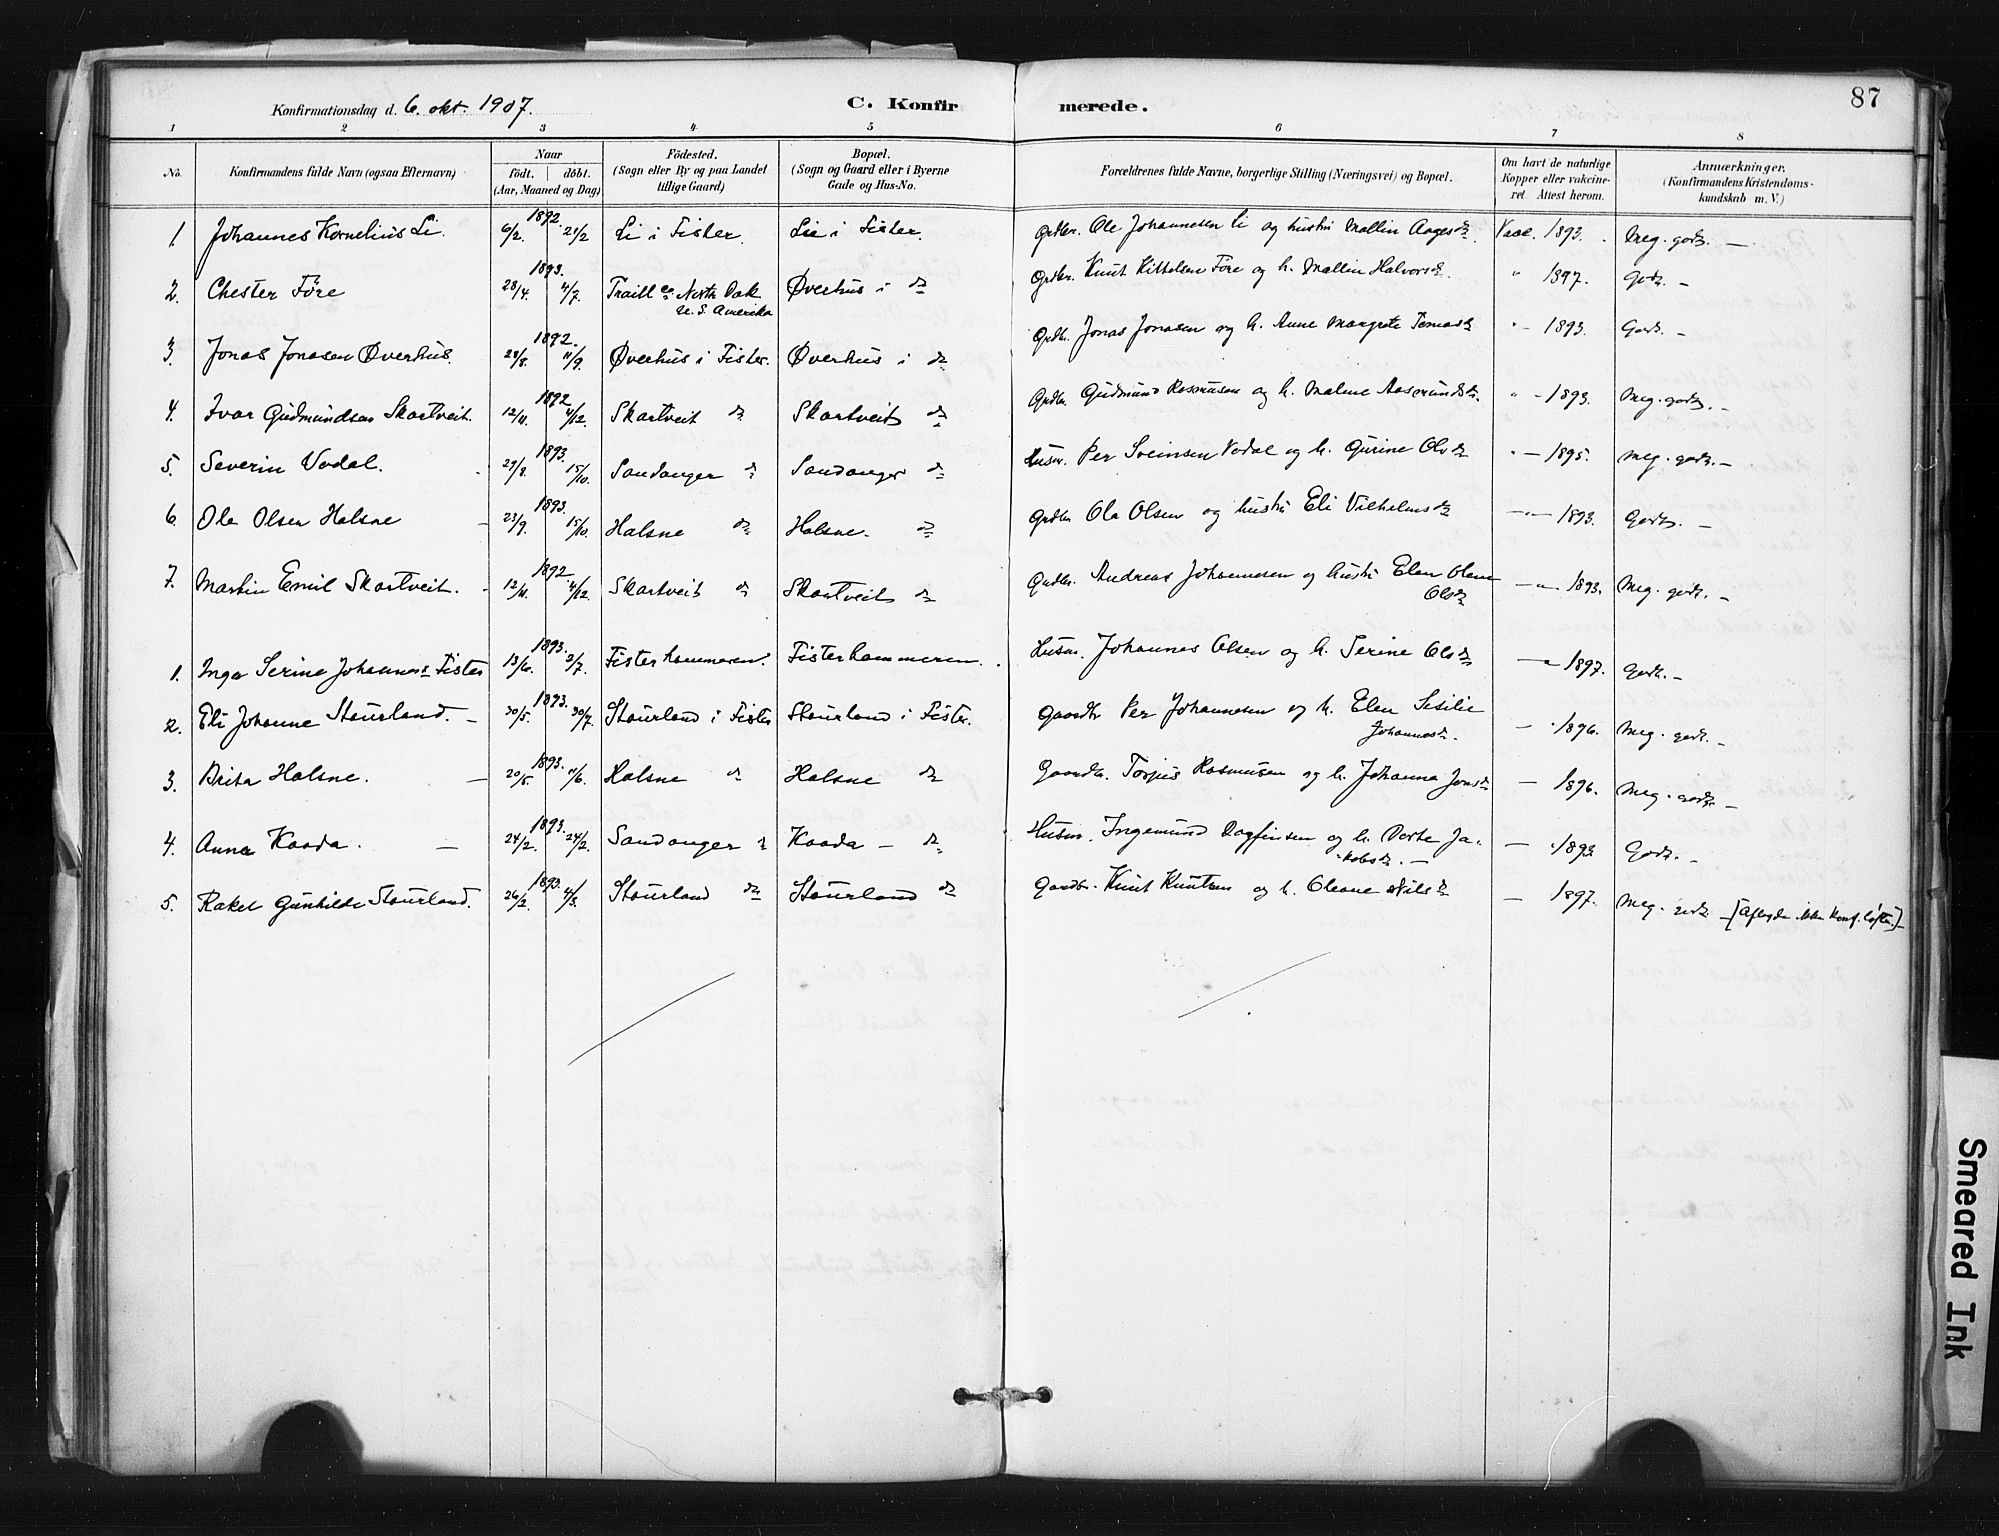 Konfirmationsdag d. 6. okt. 1907.
C. Konfirmerede.
87
1 2 3 4 5 6 7 8
No. Konfirmandens fulde Navn (ogsaa Efternavn) Naar født. døbt. (Aar, Maaned og Dag) Fødested. (Sogn eller By og paa Landet tillige Gaard) Bopæl. (Sogn og Gaard eller i Byerne Gade og Hus-No. Forældrenes fulde Navne, borgerlige Stilling (Næringsvei) og Bopæl. Om havt de naturlige Kopper eller vakcineret Attest herom. Anmærkninger. (Konfirmandens Kristendomskundskab m. V.)
1. Johannes Kornelius Li. 1892. 6/2. 21/2 Li i Fister. Lie i Fister. Grdbr. Ole Johannesen Li og hustri Mallin Aagesdr. Vacc. 1893. Meg. godt. —
2. Chester Före 1893. 28/4. 4/7. Traill co North Dak. U. S. Amerika Øverhus i do Grdbr. Knut Kittelsen Före og h. Mallin Halvorsdr. " 1897. Godt. —
3. Jonas Jonasen Øverhus. 1892. 28/8. 11/9. Øverhus i Fister. Øverhus i do Grdbr. Jonas Jonasen og h. Anne Margrete Tomasdr " - 1893. Godt. —
4. Ivar Gudmundsen Skartveit. 1892 12/11. 4/12. Skartveit do Skartveit do Grdbr. Gudmund Rasmusen og h. Malene Aasmundsdr. " - 1893. Meg. godt. —
5. Severin Vodal. 1893. 29/8. 15/10. Sandanger do Sandanger do Husm. Per Sveinsen Vodal og h. Gurine Olsdr " — 1895. Meg. godt. —
6. Ole Olsen Halsne — 1893. 23/9. 15/10. Halsne do Halsne. do Grdbr Ole Olsen og hustri Eli Vilhelmsdr —"— 1893. Godt. —
7. Martin Emil Skartveit. - 1892. 12/11. 4/12. Skartveit do Skartveit do Grdbr. Andreas Johannesen og hustri Elen Olene Olsdr —"— 1893. Meg. godt. —
1. Inga Serine Johannesdr Fister 1893. 13/6. 2/7. Fisterhammeren. Fisterhammeren. Husm. Johannes Olsen og h. Serine Olsdr —" 1897. Godt. —
2. Eli Johanne Staurland. — 1893. 30/5. 30/7. Staurland i Fister Staurland i Fister. Gaardbr Per Johannesen og h. Elen Sesilie Johannesdr. — " 1896. Meg. godt. —
3. Brita Halsne. — 1893. 20/5. 11/6. Halsne do Halsne do Gaardbr. Torjus Rasmusen og h. Johanna Jonsdr — 1896. Meg. godt. —
4. Anna Kaada. — 1893. 24/2. 24/2. Sandanger do Kaada — do Husm. Ingemund Dagfinsen og h. Berte Jakobsdr. — — 1893 Godt. —
5. Rakel Gunhilde Staurland. 1893. 26/2. 4/3. Staurland do Staurland do Gaardbr. Knut Knutsen og h. Oleane Nilsdr — 1897. Meg. godt — [Aflagde ikke konf. løfte.] —
Smeared Ink